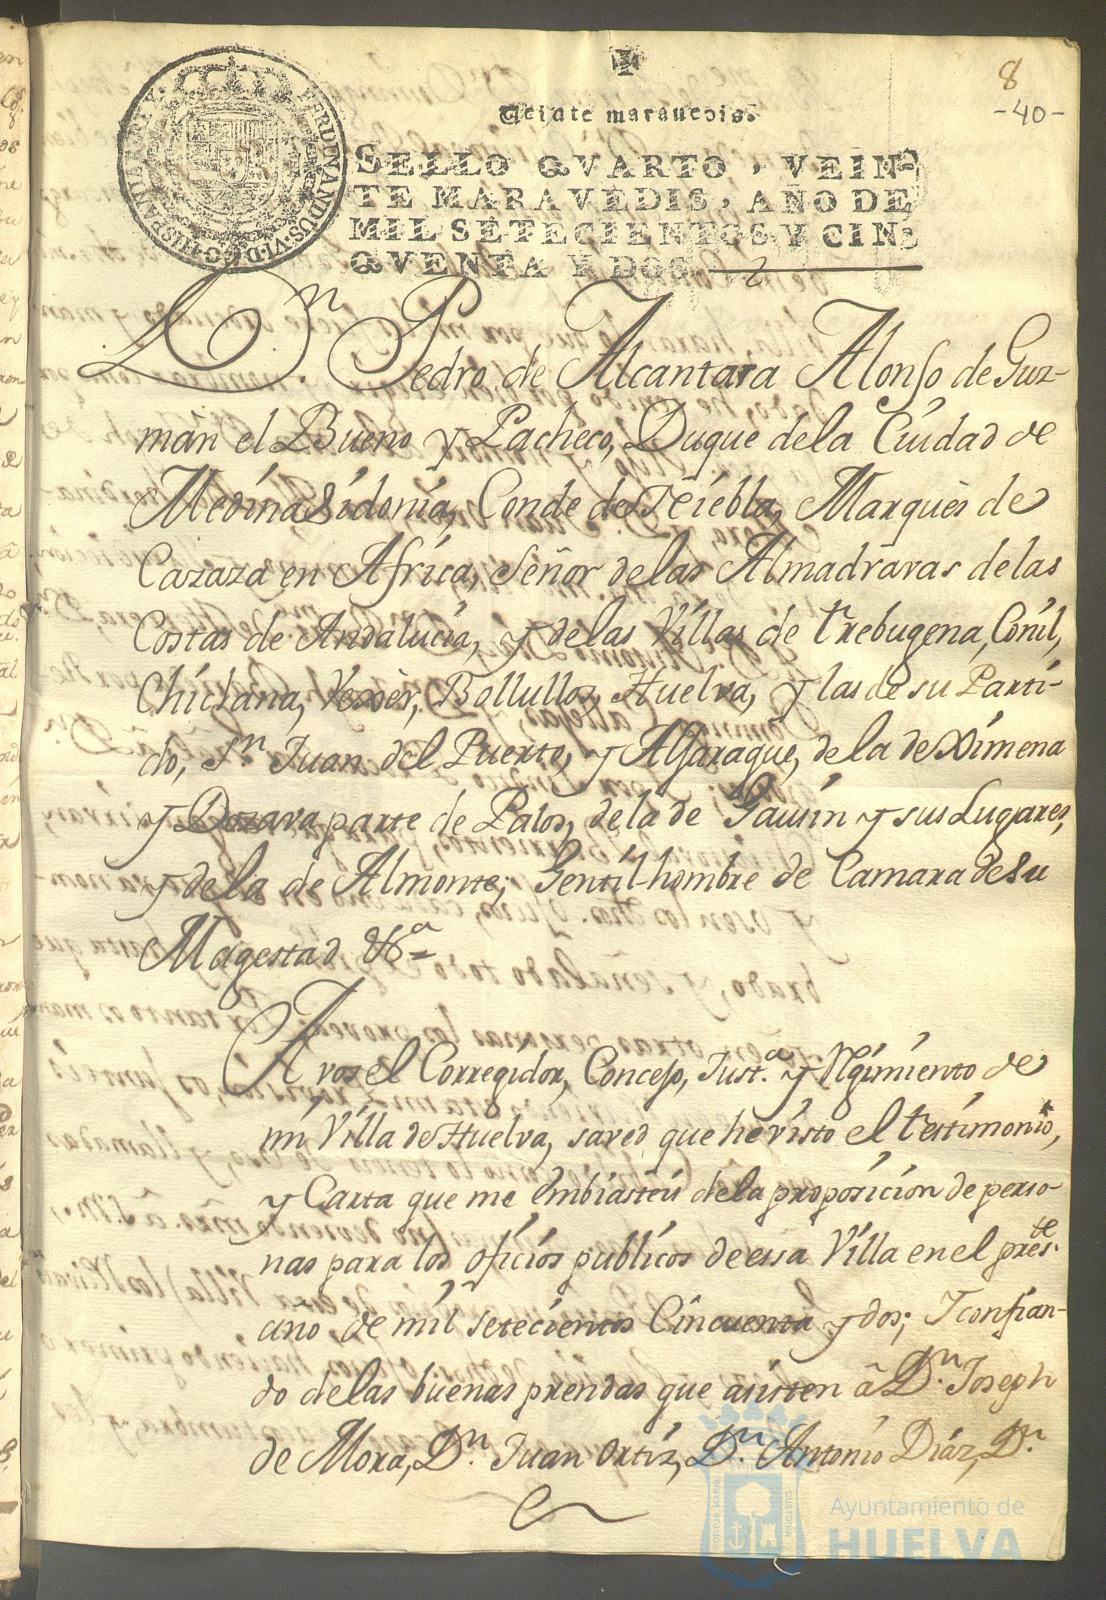 8
-40-
Veinte marauedis.
SELLO QVARTO, VEIN-
TE MARAVEDIS, AÑO DE
MIL SETECIENTOS Y CIN-
QVENTA Y DOS
FERDINANDUS·VI·D·G·HISPANIAR·REX·
Dn. Pedro de Alcantara Alonso de Guz-
man el Bueno y Pacheco, Duque dela Ciudad de
Medina Sidonia, Conde de Niebla, Marquès de
Cazaza en Africa, Señor de las Almadravas de las
Costas de Andalucia, y de las Villas de trebugena, Conil,
Chiclana, Vexèr, Bollullos, Huelva, y las de su Parti-
do, Sn. Juan del Puerto, y Aljaraque, de la de Ximena
y Dozava parte de Palos, de la de Gausin y sus Lugares,
y de la de Almonte; Gentil-hombre de Camara de Su
Magestad &a
A vos el Corregidor, Concejo, Just.a y Rgimiento de
mi Villa de Huelva, saved que he visto el testimonio,
y Carta que me embiasteis de la proposicion de perso-
nas para los oficios publicos de essa Villa en el pres.te
año de mil setecientos Cincuenta y dos; Y confian-
do de las buenas prendas que asisten â Dn. Joseph
de Mora, Dn. Juan Ortiz, Dn. Antonio Diáz, Dn.
PORTUS MARIS CUSTODIA
Ayuntamiento de
HUELVA